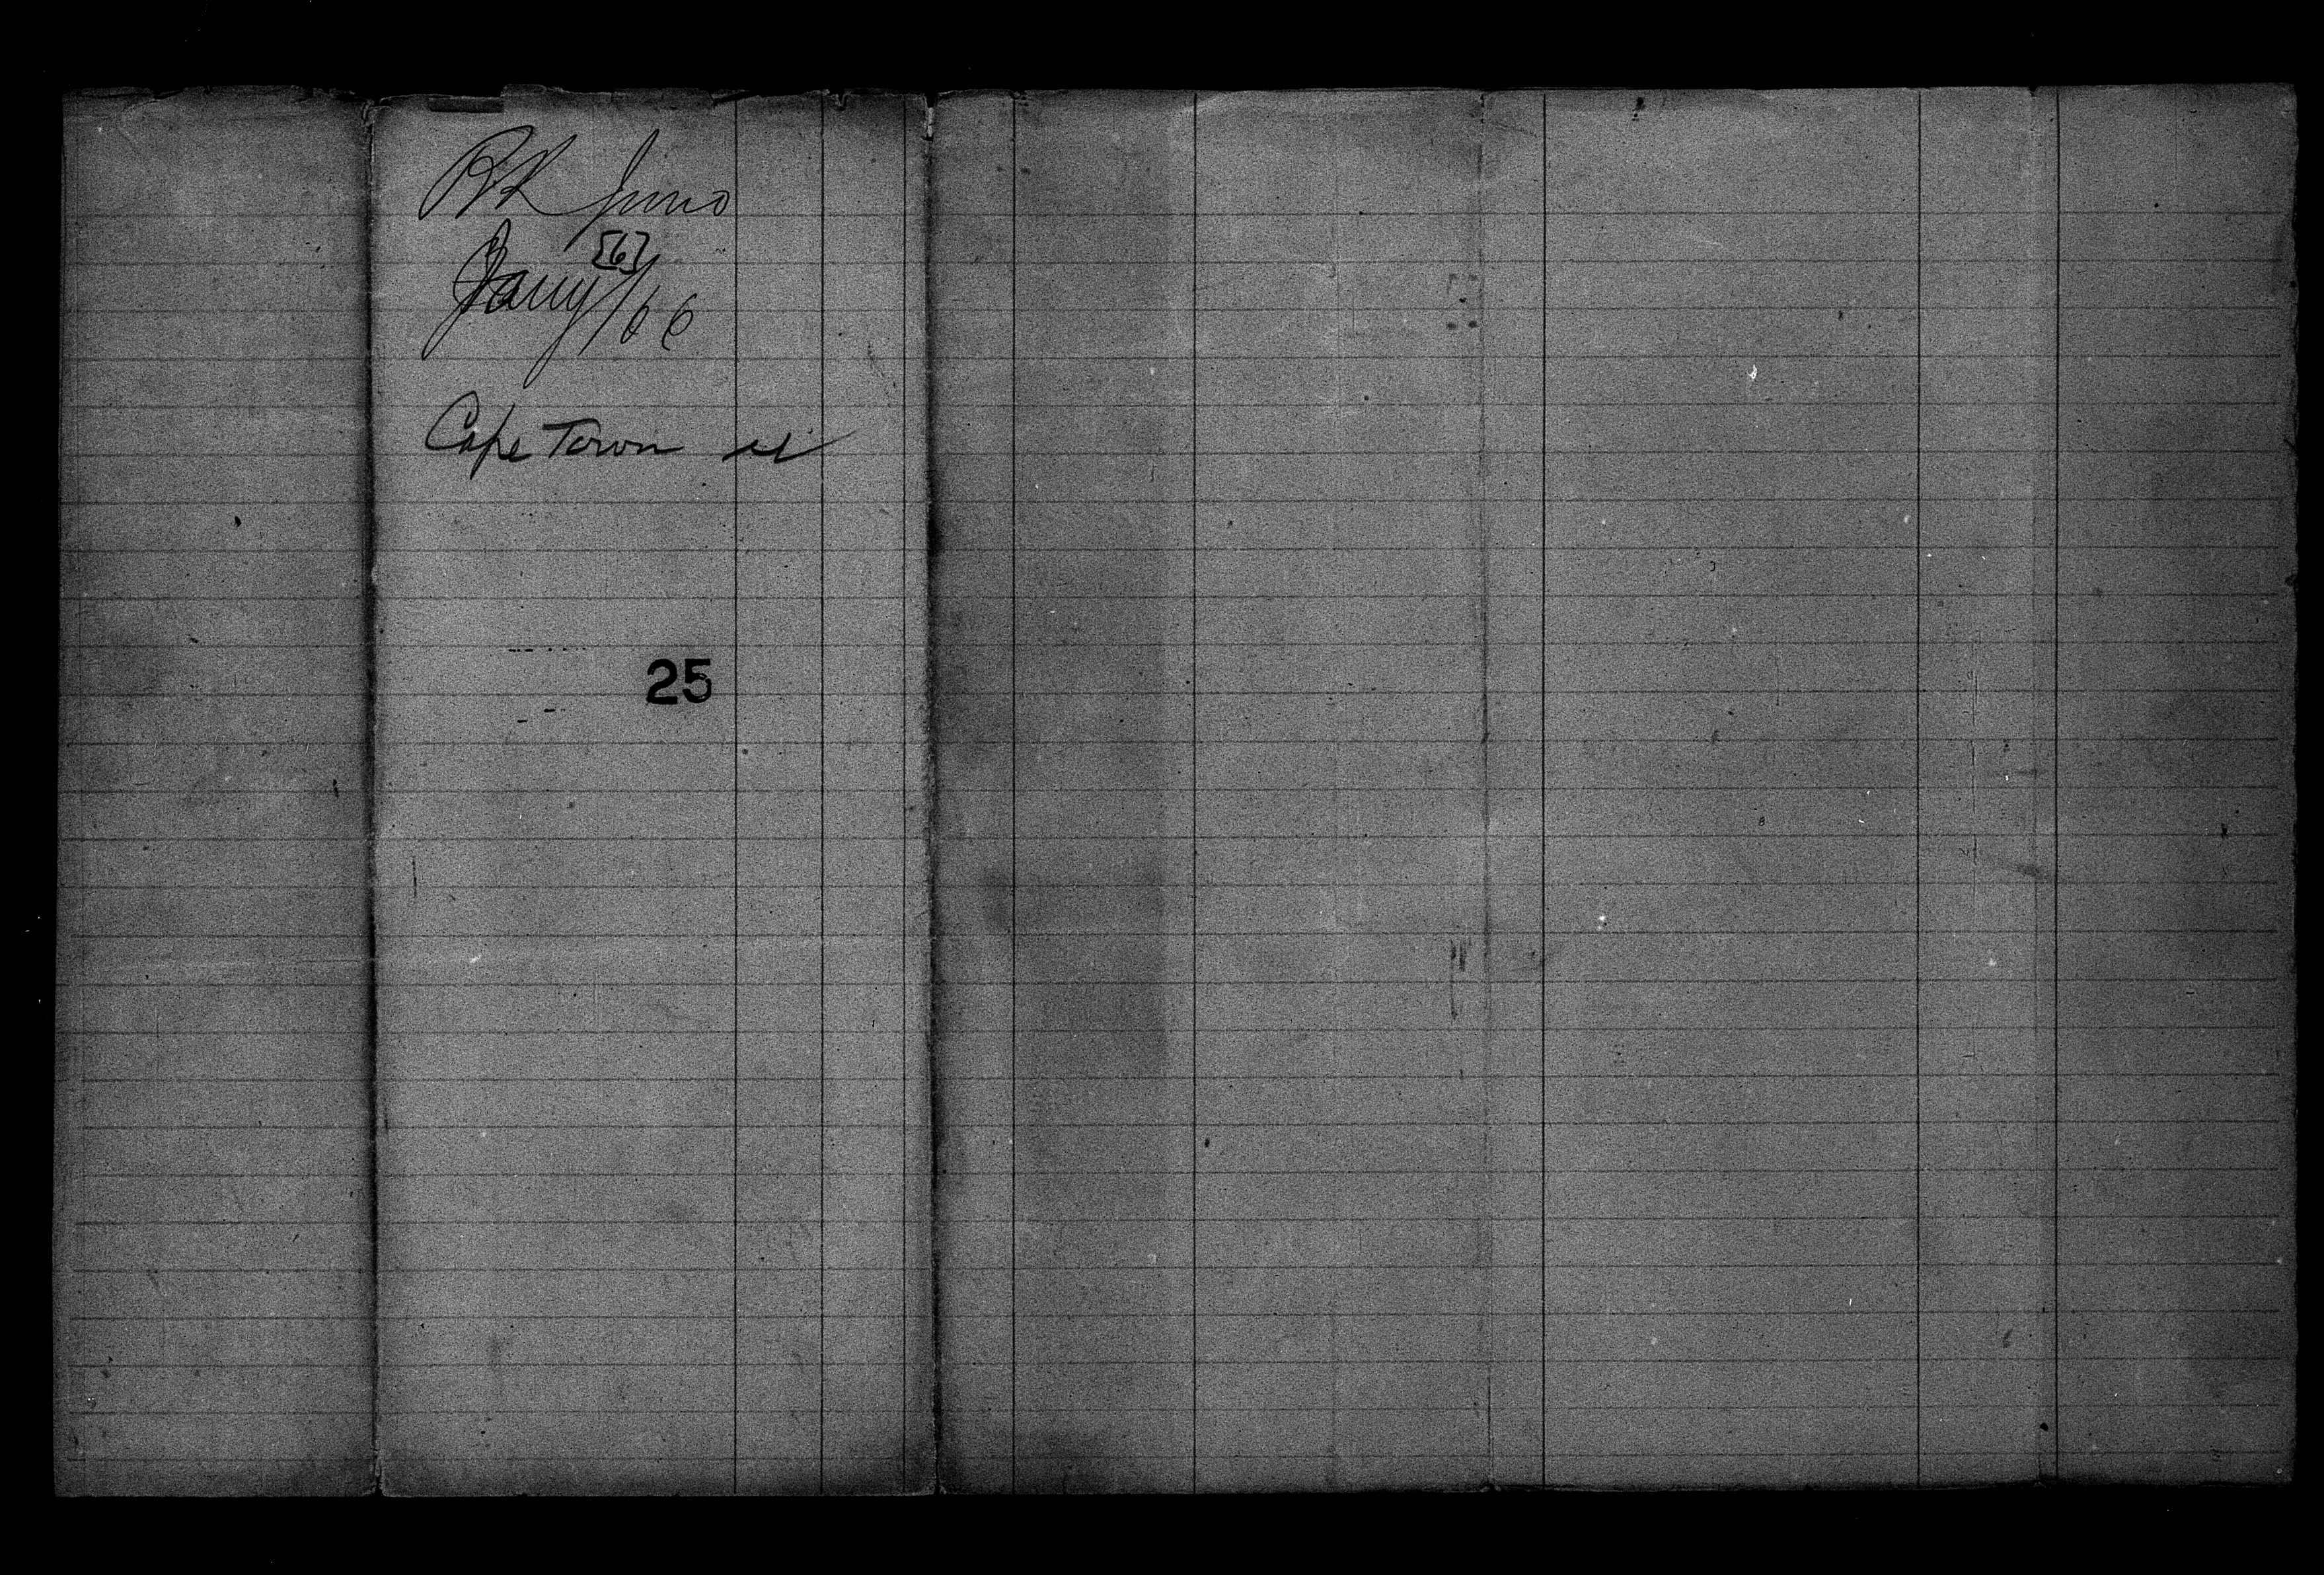 Bk Juno
[6]
Jany/66
Cape Town
25